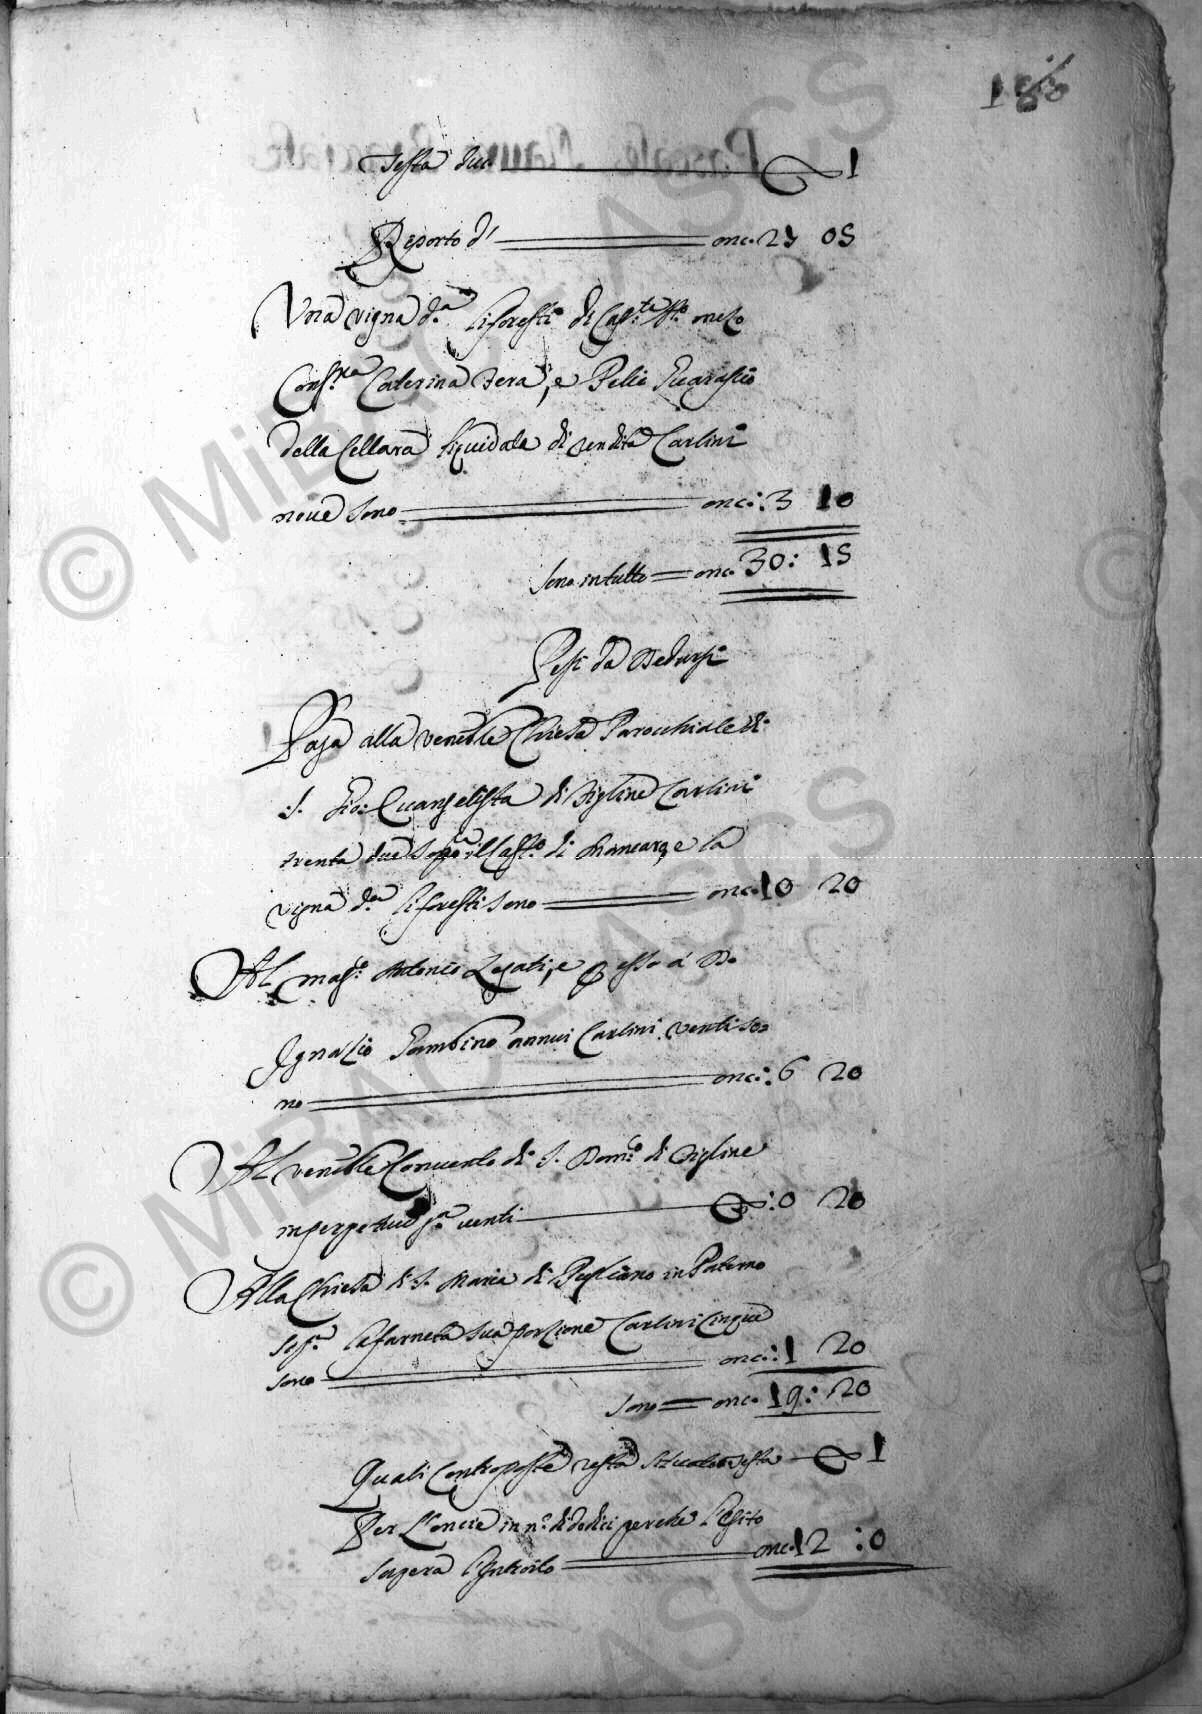 188
Testa duc. 1
Reporto d' onc. 27 05
Una vigna d.a Liforesti di mezo
Caterina e
della Cellara liquidata di rendita Carlini
nove sono onc.: 3 10
sono in tutto onc. 30: 15
Pesi da Dedursi
Paga alla veneble Chiesa Parocchiale di
S. Gio: Evangelista di Figline Carlini
trenta due sop.a il Cast.o di e la
vigna d.a Liforesti sono onc. 10 20
Al mag.o Antonio Legati, e p esso a D.
Ignazio annui Carlini venti so=
no onc.: 6 20
Al veneble Convento di S. Dom.co di Figline
in perpetuo g.a venti :0 20
Alla Chiesa di S. Maria di Pugliano in Paterno
sop.a la farneta sua porzione Carlini cinque
sono onc.: 1 20
sono onc. 19: 20
Quali contraposte resta testa 1
Per l'oncie in n.o di dodici perche l'esito
supera l'introito onc. 12 :0
© MiBAC - ASCS
© MiBAC - ASCS